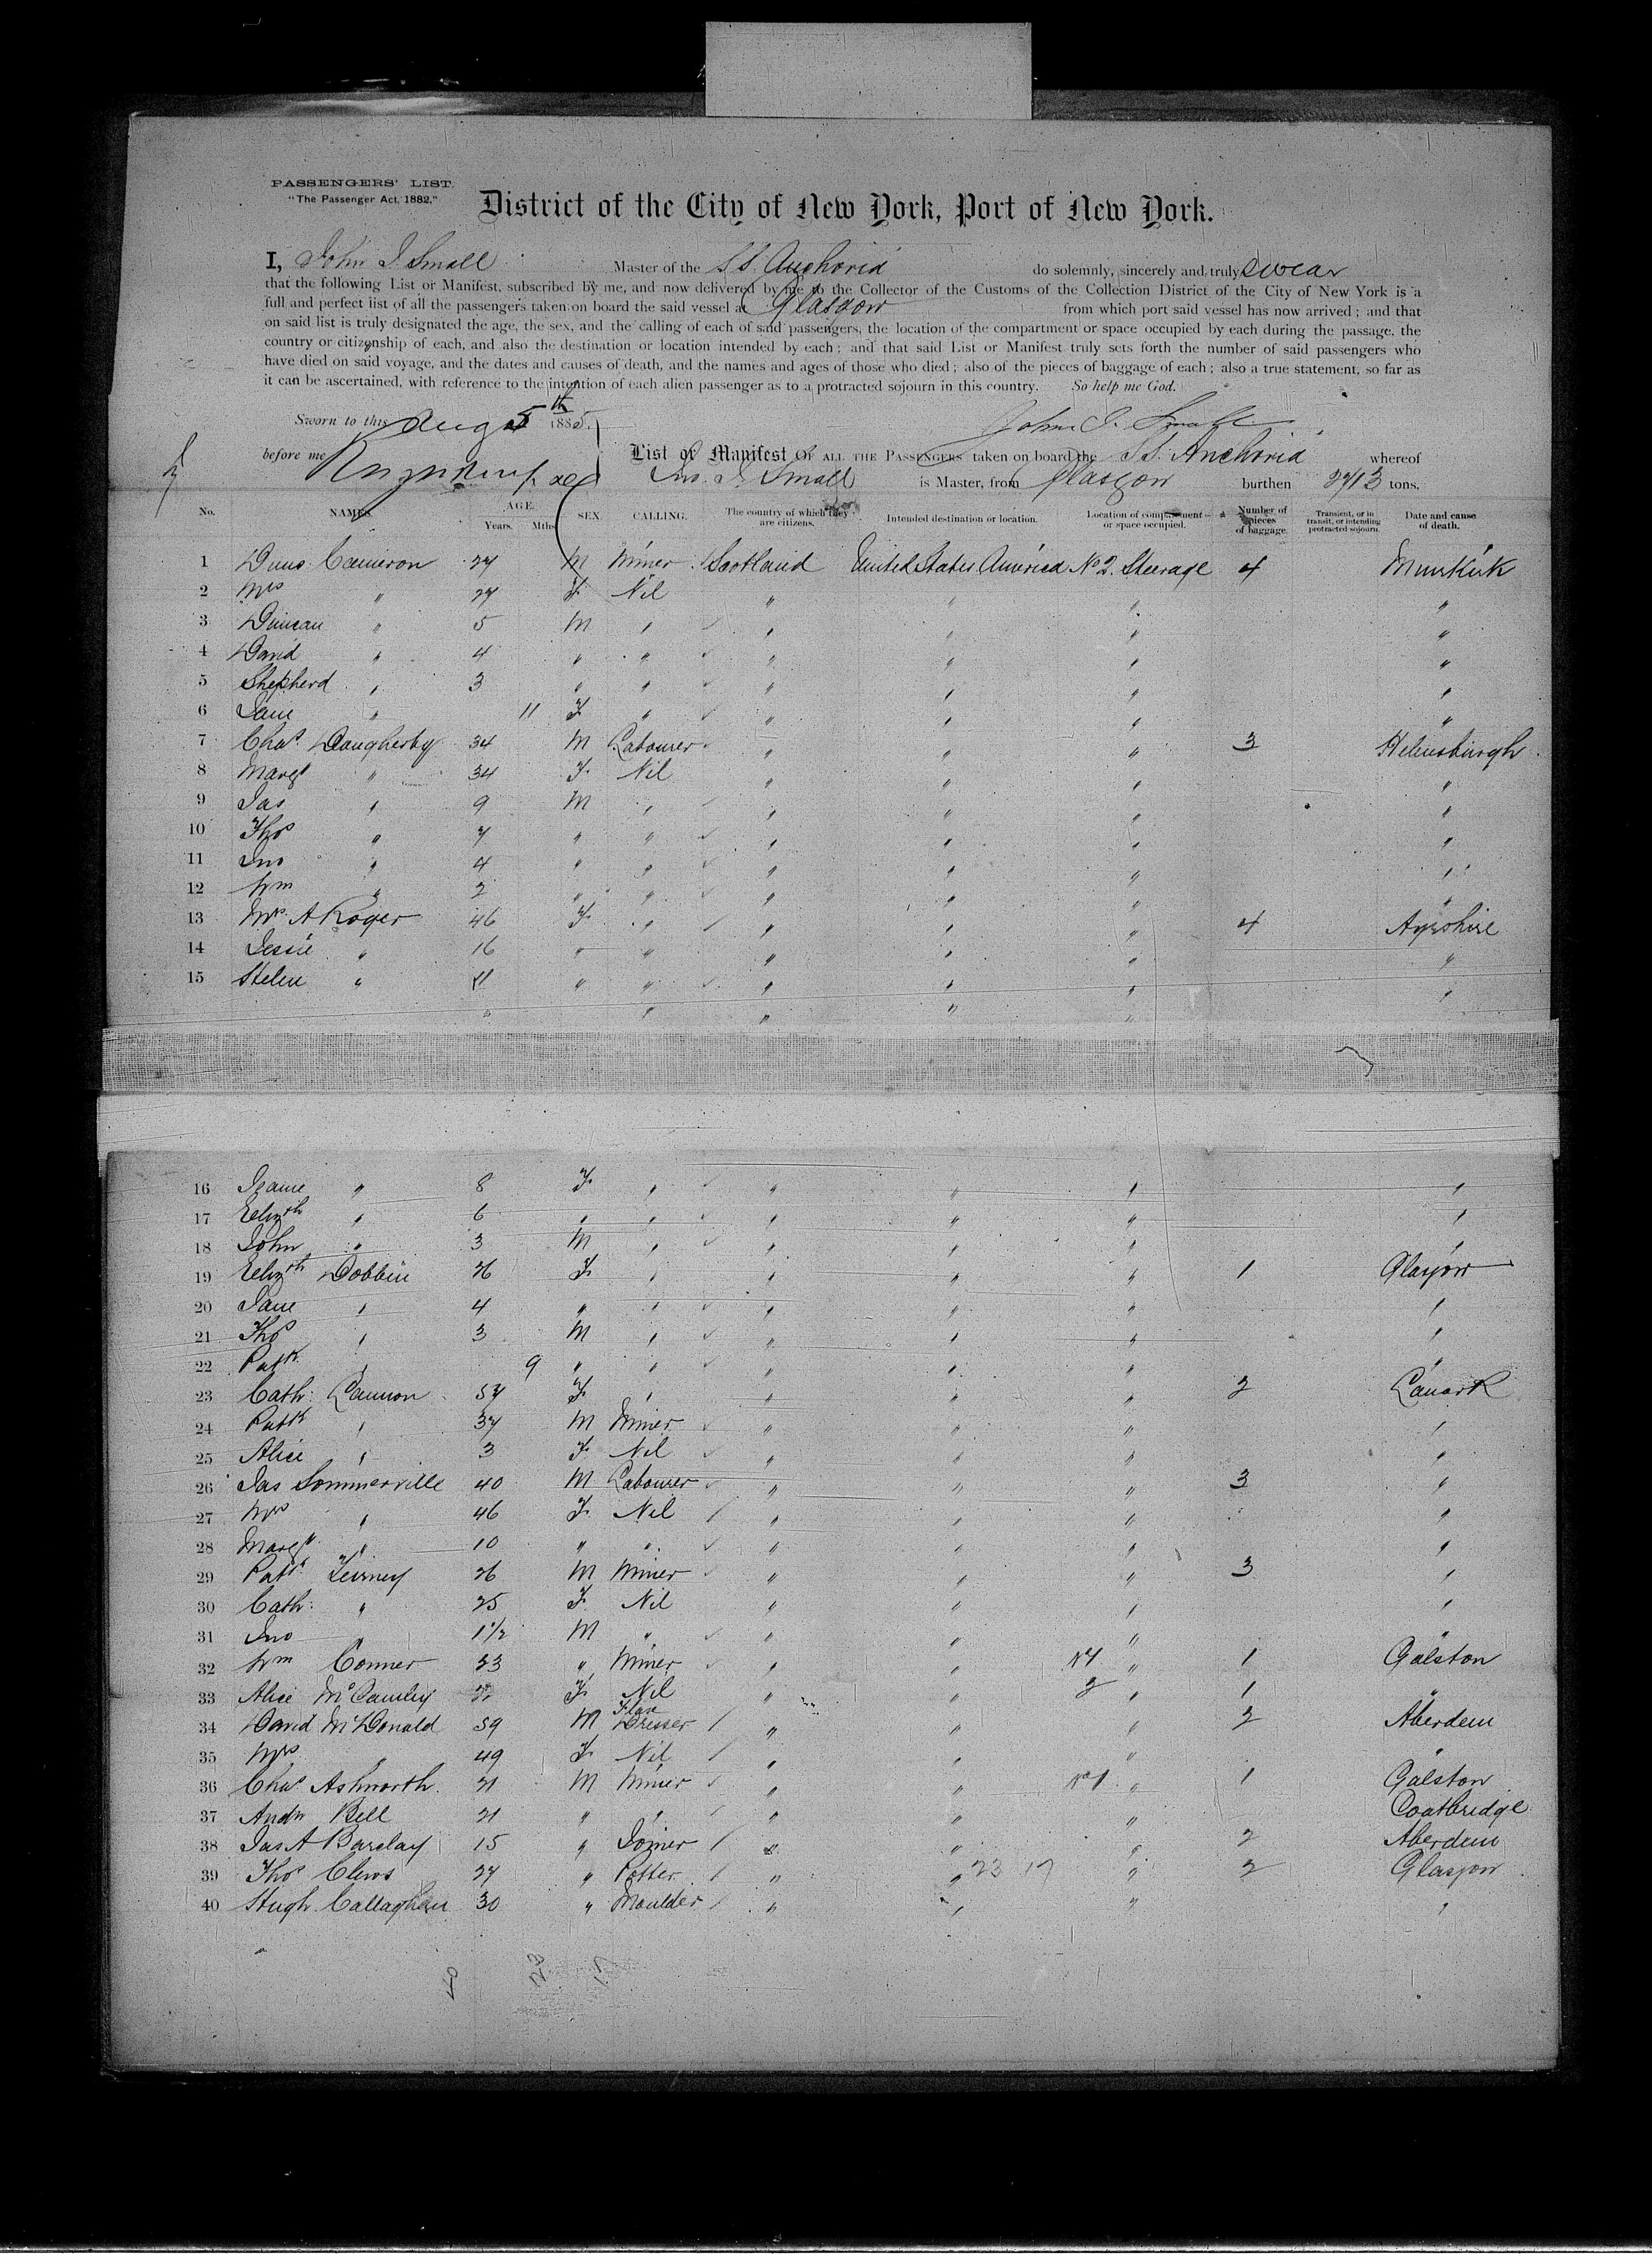 PASSENGERS' LIST.
"The Passenger Act, 1882,"
District of the City of New York, Port of New York.
I, John J. Small Master of the S.S. Anchoria do solemnly, sincerely and truly swear
that the following List or Manifest, subscribed by me, and now delivered by me to the Collector of the Customs of the Collection District of the City of New York is a
full and perfect list of all the passengers taken on board the said vessel at Glasgow from which port said vessel has now arrived; and that
on said list is truly designated the age, the sex, and the calling of each of said passengers, the location of the compartment or space occupied by each during the passage, the
country or citizenship of each, and also the destination or location intended by each; and that said List or Manifest truly sets forth the number of said passengers who
have died on said voyage, and the dates and causes of death, and the names and ages of those who died; also of the pieces of baggage of each; also a true statement, so far as
it can be ascertained, with reference to the intention of each alien passenger as to a protracted sojourn in this country. So help me God.
Sworn to this Aug 5th 1885. John J. Small
before me List or Manifest OF ALL THE PASSENGERS taken on board the S.S. Anchoria whereof
Jno. J. Small is Master, from Glasgow burthen 2713 tons.
No. NAMES. AGE. Years. Mths. SEX. CALLING. The country of which they are citizens. Intended destination or location. Location of compartment or space occupied. Number of pieces of baggage. Transient, or in transit, or intending protracted sojourn. Date and cause of death.
1 Dunc Cameron 27 M Miner Scotland United States America No 2. Steerage 4 Muirkirk
2 Mrs " 27 F Nil " " " "
3 Duncan " 5 M " " " " "
4 David " 4 " " " " " "
5 Shepherd " 3 " " " " " "
6 Jane " 11 F " " " " "
7 Chas Daugherty 34 M Labourer " " " 3 Helensburgh
8 Margt " 34 F Nil " " " "
9 Jas " 9 M " " " " "
10 Thos " 7 " " " " " "
11 Jno " 4 " " " " " "
12 Wm " 2 " " " " " "
13 Mrs A Roger 46 F " " " " 4 Ayrshire
14 Jessie " 16 " " " " " "
15 Helen " 11 " " " " " "
" " " " "
16 " 8 F " " " " "
17 Elizth " 6 " " " " " "
18 John " 3 M " " " " "
19 Elizth Dobbin 26 F " " " " 1 Glasgow
20 Jane " 4 " " " " " "
21 Thos " 3 M " " " " "
22 Patk " 9 " " " " " "
23 Cath: Cannon 57 F " " " " 2 Lanark
24 Patk " 37 M Miner " " " "
25 Alice " 3 F Nil " " " "
26 Jas Sommerville 40 M Labourer " " " 3 "
27 Mrs " 46 F Nil " " " "
28 Margt " 10 " " " " " "
29 Patk 26 M Miner " " " 3 "
30 Cath: " 25 F Nil " " " "
31 Jno " 1 1/2 M " " " " "
32 Wm Conner 23 " Miner " " No 1 " 1 Galston
33 Alice McCauley 22 F Nil " " 2 " 1 "
34 David McDonald 59 M Flax Dresser " " " 2 Aberdeen
35 Mrs " 49 F Nil " " " "
36 Chas Ashworth 21 M Miner " " No 1 " 1 Galston
37 Andw Bell 21 " " " " " Coatbridge
38 Jas A Barclay 15 " Joiner " " " 2 Aberdeen
39 Thos Clews 27 " Potter " " 23 17 " 2 Glasgow
40 Hugh Callaghan 30 " Moulder " " " "